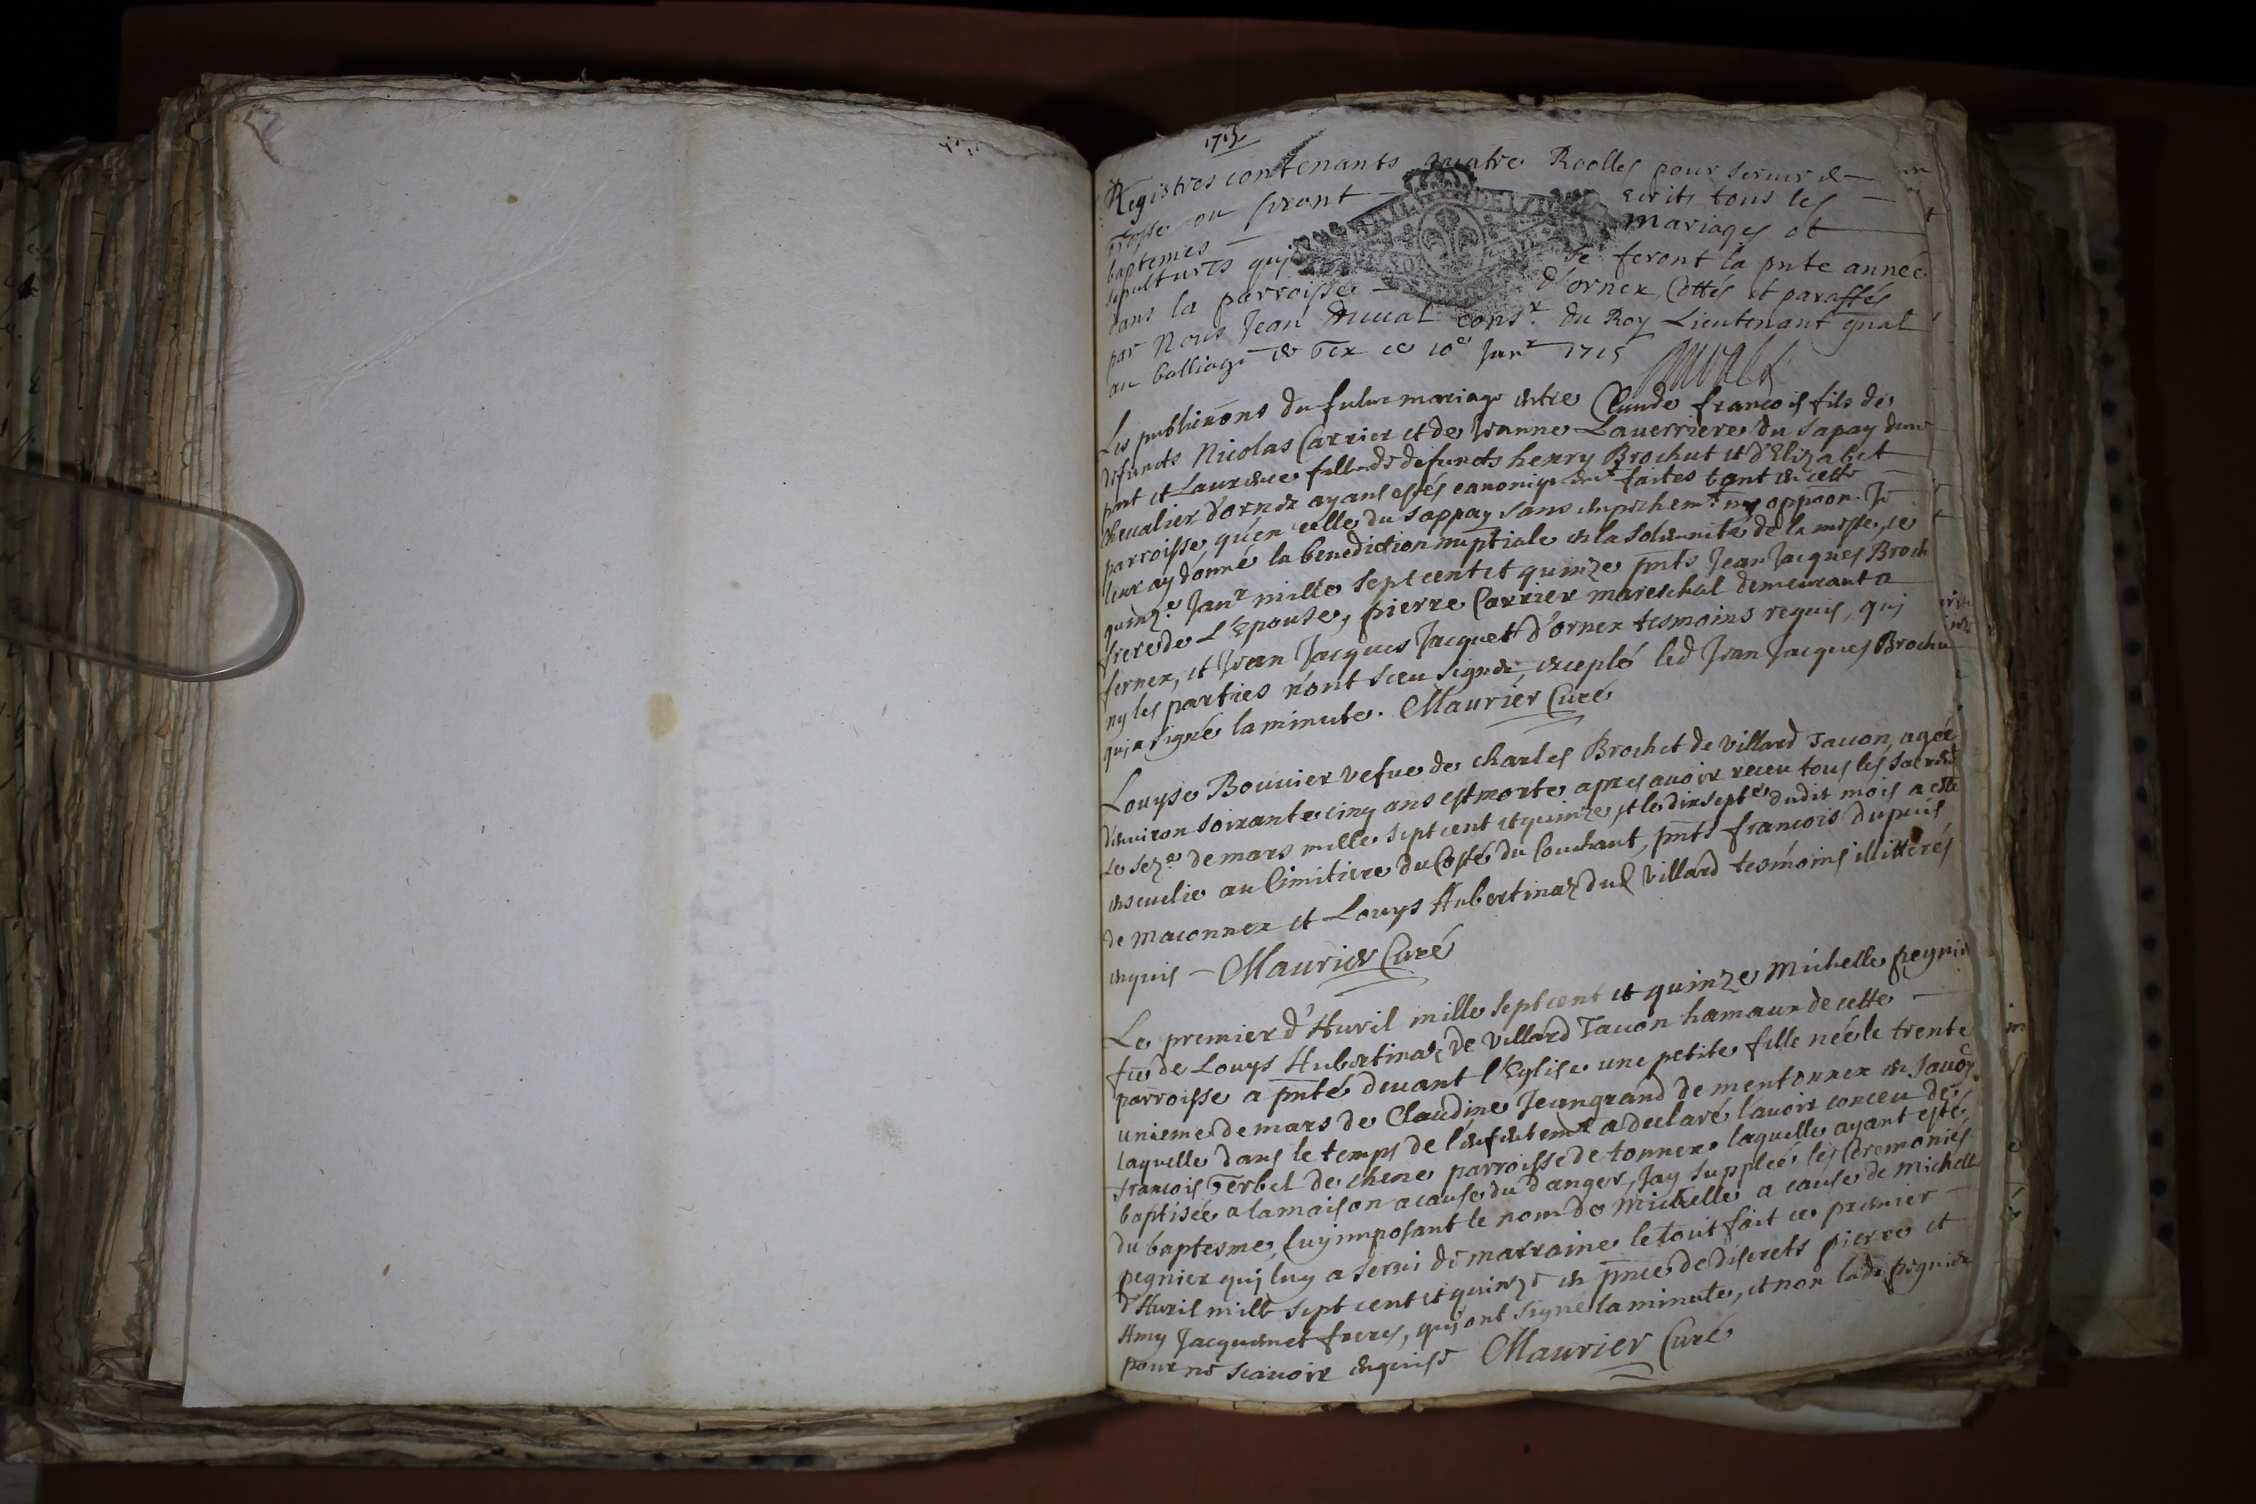 1715
Registres contenants quatre Roolles pour servir de
grosse ou seront escrits tous les
baptemes mariages et
sepultures qui se feront la pnte année
dans la parroisse d'ornex, Cottés et paraffés
par Nous Jean Duual Consr. du Roy Lieutenant gnal
au balliage de Gex ce 10e Janr 1715
Les publicaons du futur mariage entre Claude francois fils de
defuncts Nicolas Carrier et de Jeanne Lauerriere du Sapay dune
part et Laurence fille de defuncts henry Brochut et d'Elizabet
Cheualier d'ornex ayans estés canoniquemt faites tant en cette
parroisse, qu'en celle du Sappay sans empechemt ny oppoon. Je
leur ay donné la benediction nuptiale en la solemnité de la messe, ce
quinze Janr mille sept cent et quinze pnts Jean Jacques Broch
frere de L'Epouse, pierre Carrier mareschal demeurant a
fernex, et Jean Jacques Jacquet d'ornex tesmoins requis, qui
ny les parties n'ont sceu signer, excepté led Jean Jacques Brochu
qui a signé la minute. Maurier Curé
Louyse Bouuier vefue de Charles Brochet de Villard Tacon, agée
d'enuiron soixante cinq ans est morte apres auoir receu tous les Sacremts
le seze de mars mille sept cent et quinze, et le dix septe dudit mois a esté
enseuelie au Cimitiere du Costé du Couchant, pnts francois dupuis
de maconnex et Louys Hubertinaz dud Villard tesmoins illitterés
enquis - Maurier Curé
Le premier d'Auril mille sept cent et quinze Michelle pegnier
fe de Louys Hubertinaz de Villard Tacon hamaux de cette
parroisse a pnté deuant l'Eglise une petite fille née le trente
unieme de mars de Claudine Jeangrand de mentonnex en Sauoy
laquelle dans le temps de l'enfantemt a declaré l'auoir conceu de
francois Gerbel de chene parroisse de tonnex laquelle ayant esté
baptisée a la maison a cause du danger, Jay supplée les Ceremonies
du baptesme, luy imposant le nom de Michelle a cause de Michelle
pegnier qui luy a serui de marraine le tout fait ce premier
d'Auril mill sept cent et quinze en pnce de discrets pierre et
Amy Jacquemet freres, qui ont signé la minute, et non lade pegnier
pour ne scauoir enquise Maurier Curé